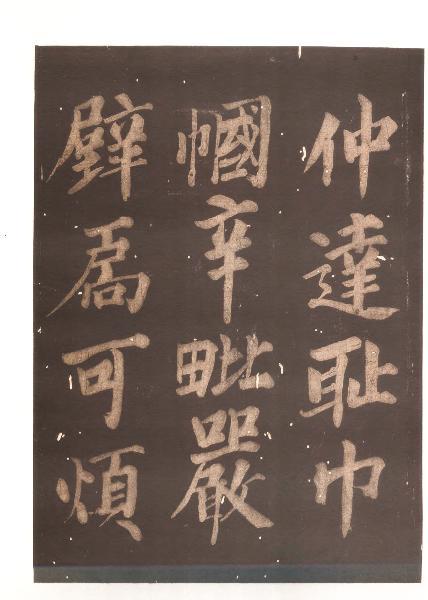 仲達耻巾
幗辛毗嚴
壁扃可煩